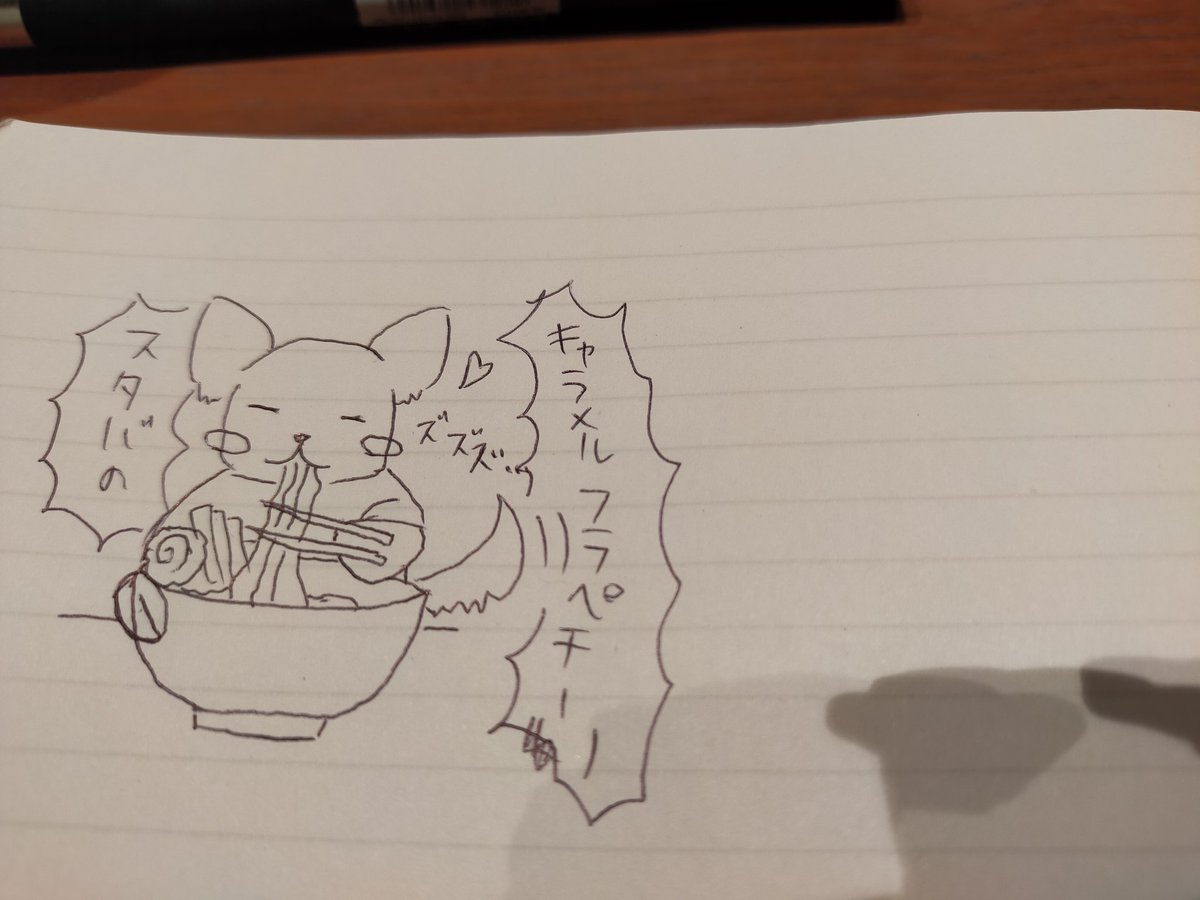 スタバの
キャラメル フラペチーノ
ズズズ…